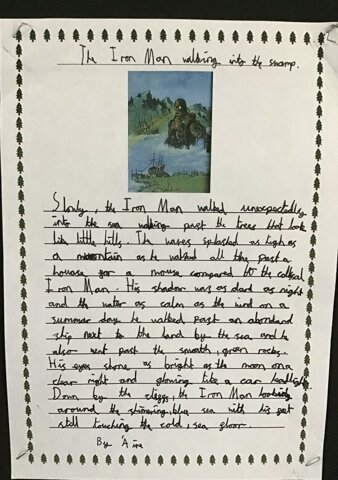 The Iron Man walking into the swamp.
Slowly, the Iron Man walked unexpectedly
into the sea walking past the trees that look
like little hills. The waves splashed as high as
a mountain as he walked all the past a
house for a mouse compared to the colosal
Iron Man. His shadow was as dark as night
and the water as calm as the wind on a
summer day he walked past an abondond
ship next to the land by the sea and he
also went past the smooth, green rocks.
His eyes shone as bright as the moon on a
clear night and glowing like a car headlight.
Down by the cliggs, the Iron Man looking
around the shimering, blue sea with his feet
still touching the cold, sea floor.
By